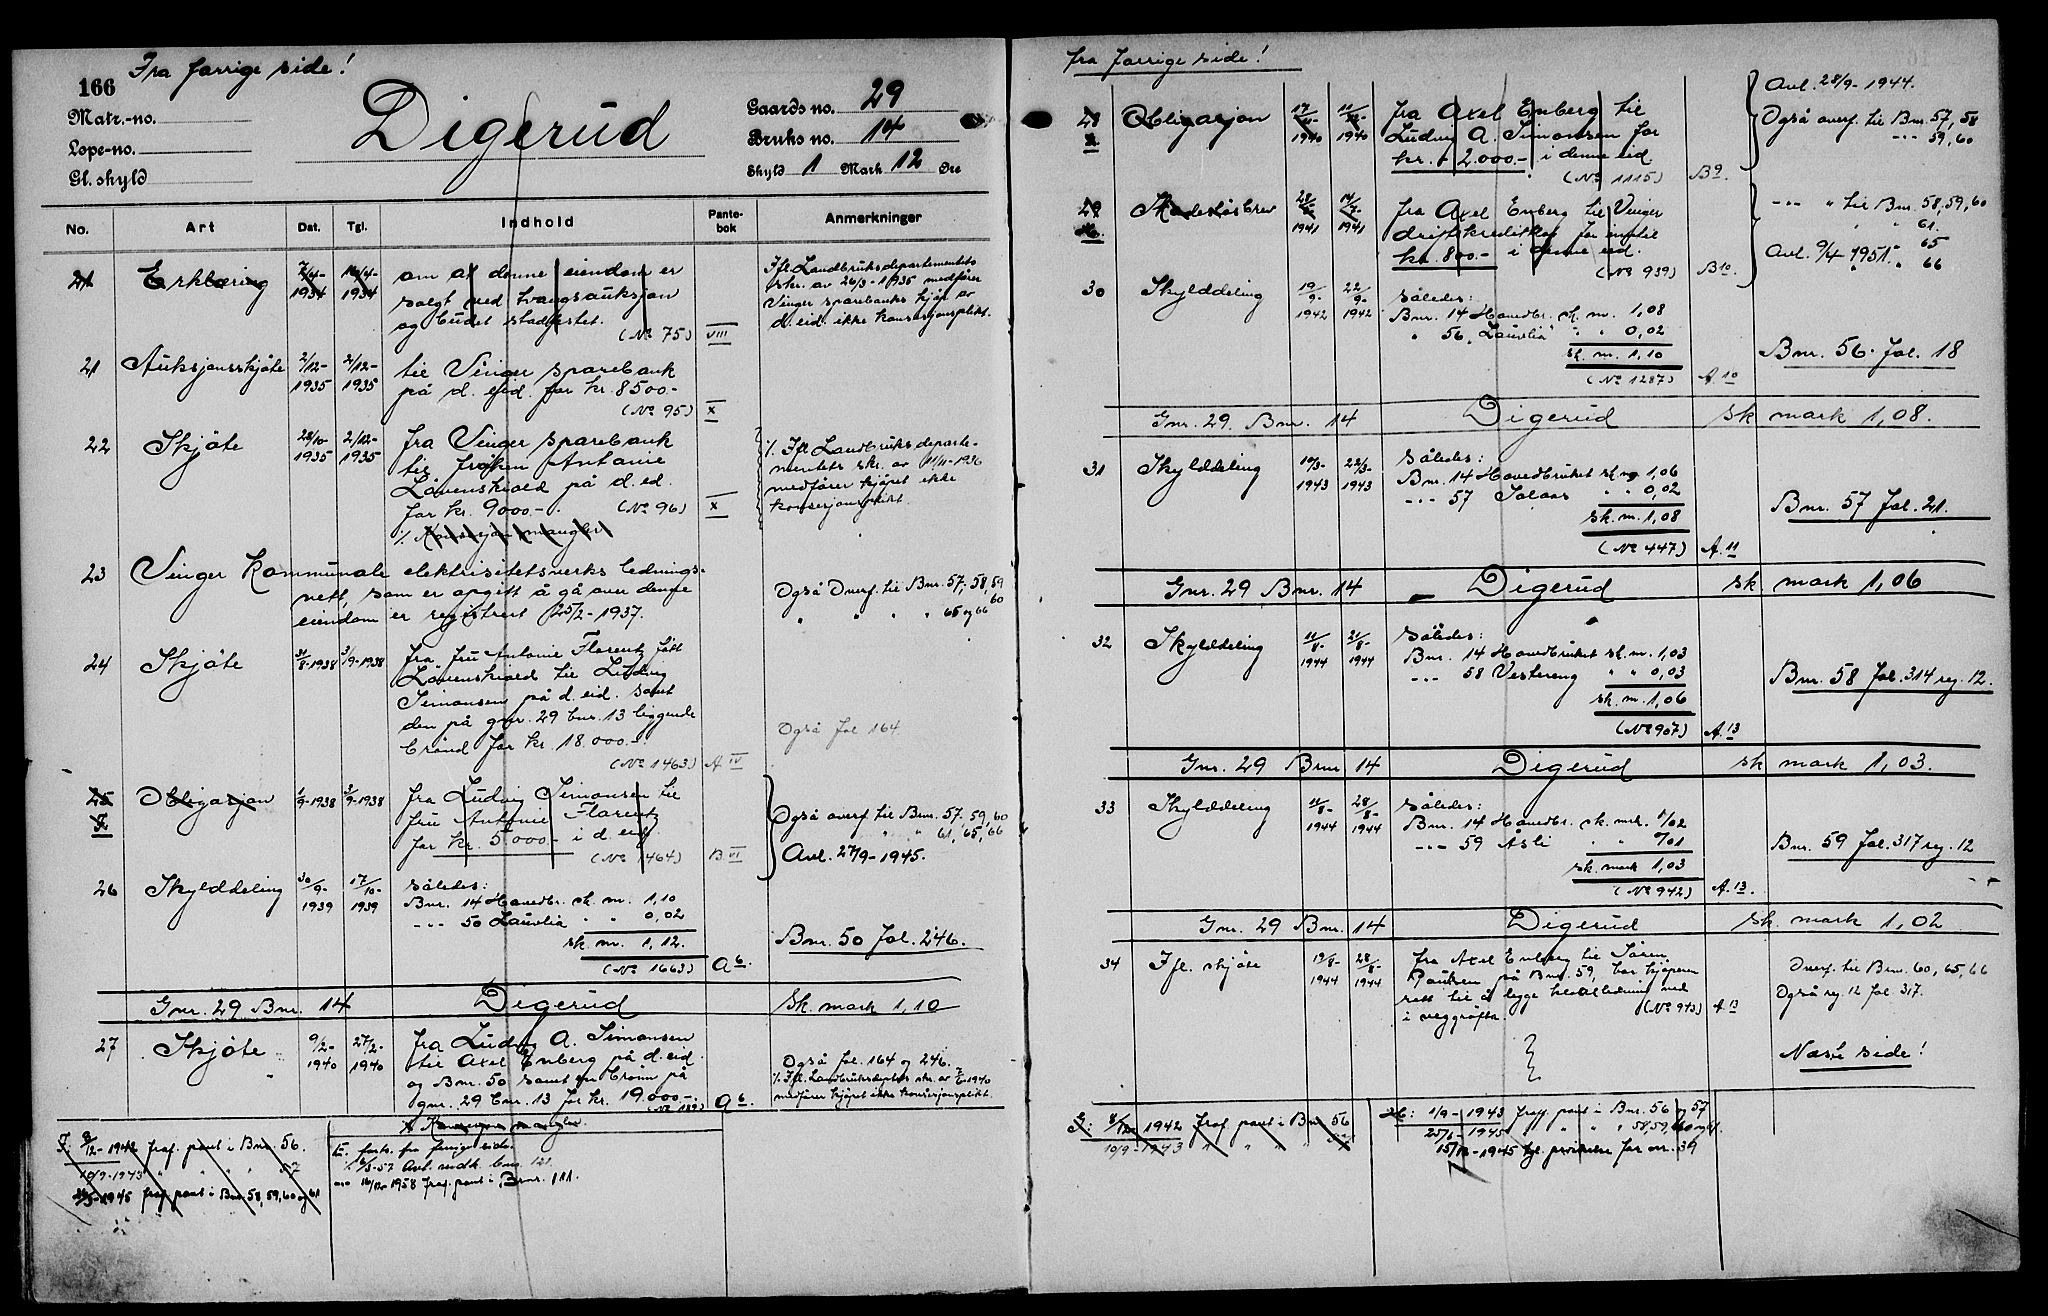 166 Fra forrige side!
Matr.-no.
Løpe-no.
Gl. skyld
Digerud
Gaards no. 29
Bruks no. 14
Skyld 1 Mark 12 Øre
No. Art Dat. Tgl. Indhold Pantebok Anmerkninger
Erklæring 1934 1934 om at denne eiendom er
solgt ved tvangsauksjon
og budet stadfestet.
(No 75) VIII
Ifl. Landbruksdepartementets
skr. av 26/3-1935 medfører
Vinger sparebanks kjøp av
d. eid. ikke konsesjonsplikt.
21 Auksjonsskjøte 2/12-1935 2/12-1935 til Vinger sparebank
på d. eid. for kr. 8500.-
(No 95) X
22 Skjøte 28/10-1935 2/12-1935 fra Vinger sparebank
til frøken Antonie
Løvenskiold på d. eid.
for kr. 9000.- (No 96) X
%. Konsesjon mangler
%. Ifl. Landbruksdeparte-
mentets skr. av 11/11-1936
medfører kjøpet ikke
konsesjonsplikt.
23 Vinger Kommunale elektrisitetsverks lednings-
nett, som er opgitt å gå over denne
eiendom er registrert 25/2-1937.
Også overf. til Bnr. 57, 58, 59
60
" " " 65 og 66
24 Skjøte 31/8-1938 3/9-1938 fra fru Antonie Florentz født
Løvenskiold til Ludvig
Simonsen på d. eid. samt
den på gnr. 29 bnr. 13 liggende
brønd for kr. 18.000.-.
(No 1463) A IV
Også fol 164
25 Obligasjon 1/9-1938 3/9-1938 fra Ludvig Simonsen til
fru Antonie Florentz
for kr. 5.000.- i d. eid.
(No 1464) B VI
Også overf. til Bnr. 57, 59, 60
" " " 61, 65, 66
Avl. 27/9-1945.
26 Skylddeling 30/9-1939 17/10-1939 således:
Bnr. 14 Hovedbr. sk. m. 1,10
--- 50 Lauvlia " " 0,02
sk. m. 1,12.
(No 1663) A 6.
Bnr. 50 fol. 246.
Gnr. 29 Bnr. 14 Digerud Sk. mark 1,10
27 Skjøte 9/2-1940 27/2-1940 fra Ludvig A. Simonsen
til Axel Enberg på d. eid.
og Bnr. 50 samt en brønn på
gnr. 29 bnr. 13 for kr. 19.000.-
(No 189) A 6.
Også fol. 164 og 246.
medfører kjøpet ikke konsesjonsplikt.
8/12-1942 fraf. pant i Bnr. 56.
10/9-1943 " " " " 57
fraf. pant i Bnr. 58, 59, 60 og 61
E. forts. fra forrige side.
1958 fraf. pant i Bnr. 111.
Fra forrige side!
28 Obligasjon 1940 1940 fra Axel Enberg til
Ludvig A. Simonsen for
kr. 2.000.- i denne eid.
(No 1115) B 9.
Avl. 28/9-1944.
Også overf. til Bnr. 57, 58
--- 59, 60
29 Skadesløsbrev 1941 1941 fra Axel Enberg til Vinger
driftskredittlag for inntil
kr. 800.- i denne eid.
(No 939) B 10.
--- " til Bnr. 58, 59, 60
61.
65
66
Avl. 9/4 1951.
30 Skylddeling 19/9-1942 22/9-1942 således:
Bnr. 14 Hovedbr. sk. m. 1,08
" 56 "Lauvlia" " " 0,02
sk. m. 1,10
(No 1287) A. 10
Bnr. 56 fol. 18
Gnr. 29. Bnr. 14 Digerud sk mark 1,08.
31 Skylddeling 1943 22/3-1943 således:
Bnr. 14 Hovedbruket sk m 1,06
--- 57 Solaas " " 0,02
sk. m. 1,08
(No 447) A. 11
Bnr. 57 fol. 21.
Gnr. 29 Bnr. 14 Digerud sk. mark 1,06
32 Skylddeling 11/8-1944 21/8-1944 således:
Bnr. 14 Hovedbruket sk. m. 1,03
--- 58 Vestereng " " 0,03
sk. m. 1,06
(No 907) A. 13
Bnr. 58 fol. 314 reg. 12.
Gnr. 29 Bnr 14 Digerud sk mark 1,03.
33 Skylddeling 11/8-1944 28/8-1944 således:
Bnr. 14 Hovedbr. sk. mrk. 1/02
--- 59 Åsli " " 0/01
sk. mark 1,03
(No 942) A. 13.
Bnr. 59 fol. 317 reg. 12
Gnr. 29 Bnr. 14 Digerud sk mark 1,02
34 Ifl. skjøte 19/8-1944 28/8-1944 fra Axel Enberg til Søren
Paulsen på Bnr. 59, har kjøperen
rett til å legge kloakkledning ned
i veggrøfta. (No 943) A. 13
Overf. til Bnr. 60, 65, 66
Også reg. 12 fol. 317.
Næste side!
8/12 1942 fraf. pant i Bnr 56
10/9-1943 " " " "
1/9-1943 fraf. pant i Bnr. 56 og 57
1945 " " " 58, 59, 60 og 61.
1945 prioritet for nr. 39